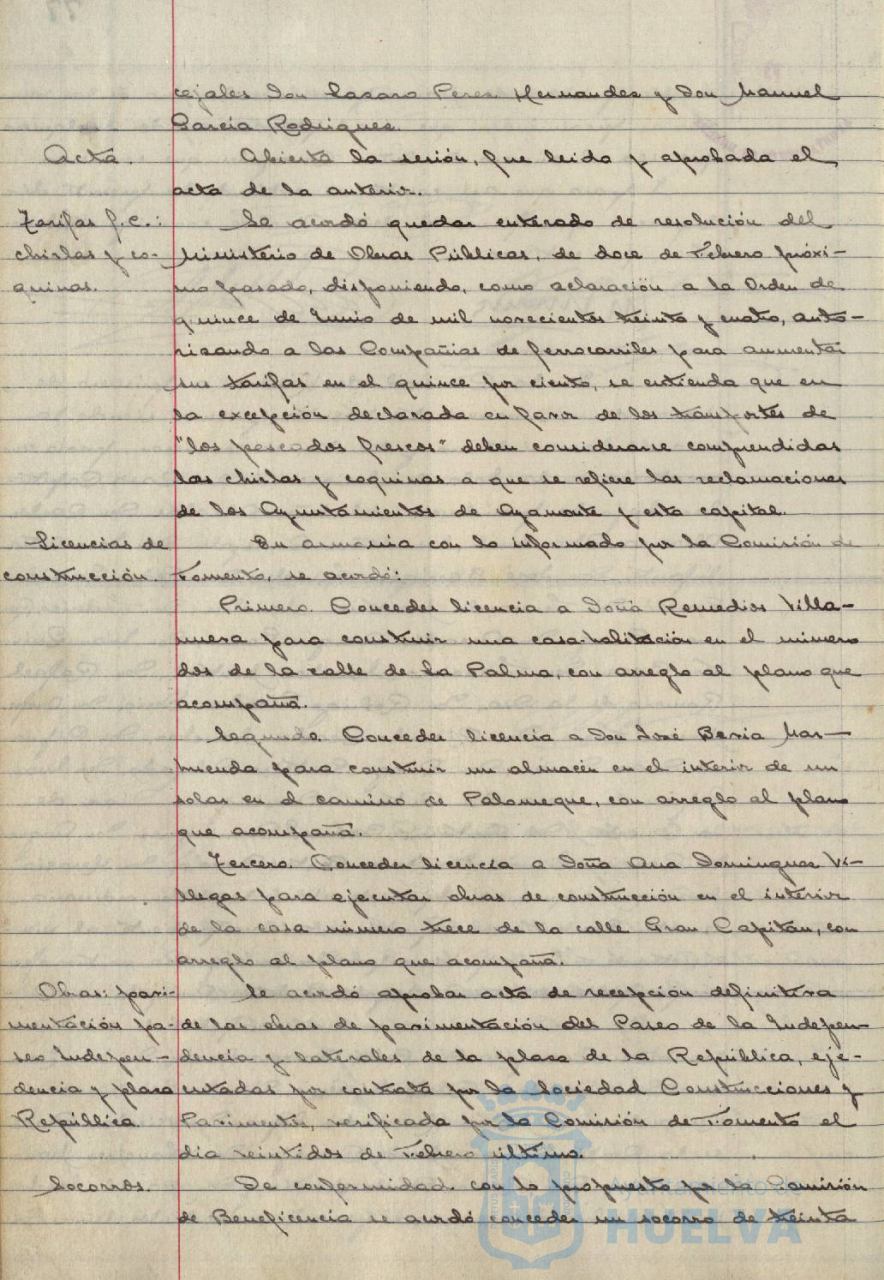 cejales Don Lazaro Perez Hernandez y Don Manuel
García Rodriguez.
Acta.
Abierta la sesión, fue leida y aprobada el
acta de la anterior.
Tarifas f.c.:
chirlas y co-
quinas.
Se acordó quedar enterado de resolución del
Ministerio de Obras Públicas, de doce de Febrero próxi-
mo pasado, disponiendo, como aclaración a la Orden de
quince de Junio de mil novecientos treinta y cuatro, auto-
rizando a las Compañías de ferrocarriles para aumentar
sus tarifas en el quince por ciento, se entienda que en
la excepción declarada en favor de los transportes de
"los pescados frescos" deben considerarse comprendidas
las chirlas y coquinas a que se refiere las reclamaciones
de los Ayuntamientos de Ayamonte y esta capital.
Licencias de
construcción.
En armonia con lo informado por la Comisión de
Fomento, se acordó:
Primero. Conceder licencia a Doña Remedios Villa-
nueva para construir una casa-habitación en el número
dos de la calle de La Palma, con arreglo al plano que
acompaña.
Segundo. Conceder licencia a Don José Baria Mar-
huenda para construir un almacén en el interior de un
solar en el camino de Palomeque, con arreglo al plano
que acompaña.
Tercero. Conceder licencia a Doña Ana Dominguez Vi-
llegas para ejecutar obras de construcción en el interior
de la casa número trece de la calle Gran Capitán, con
arreglo al plano que acompaña.
Obras: pavi-
mentación pa-
seo Indepen-
dencia y plaza
República
Se acordó aprobar acta de recepción definitiva
de las obras de pavimentación del Paseo de la Indepen-
dencia y laterales de la plaza de la República, eje-
cutadas por contrata por la Sociedad Construcciones y
Pavimentos, verificada por la Comisión de Fomento el
dia veintidos de Febrero último.
Socorros.
De conformidad con lo propuesto por la Comisión
de Beneficencia se acordó conceder un socorro de treinta
HUELVA